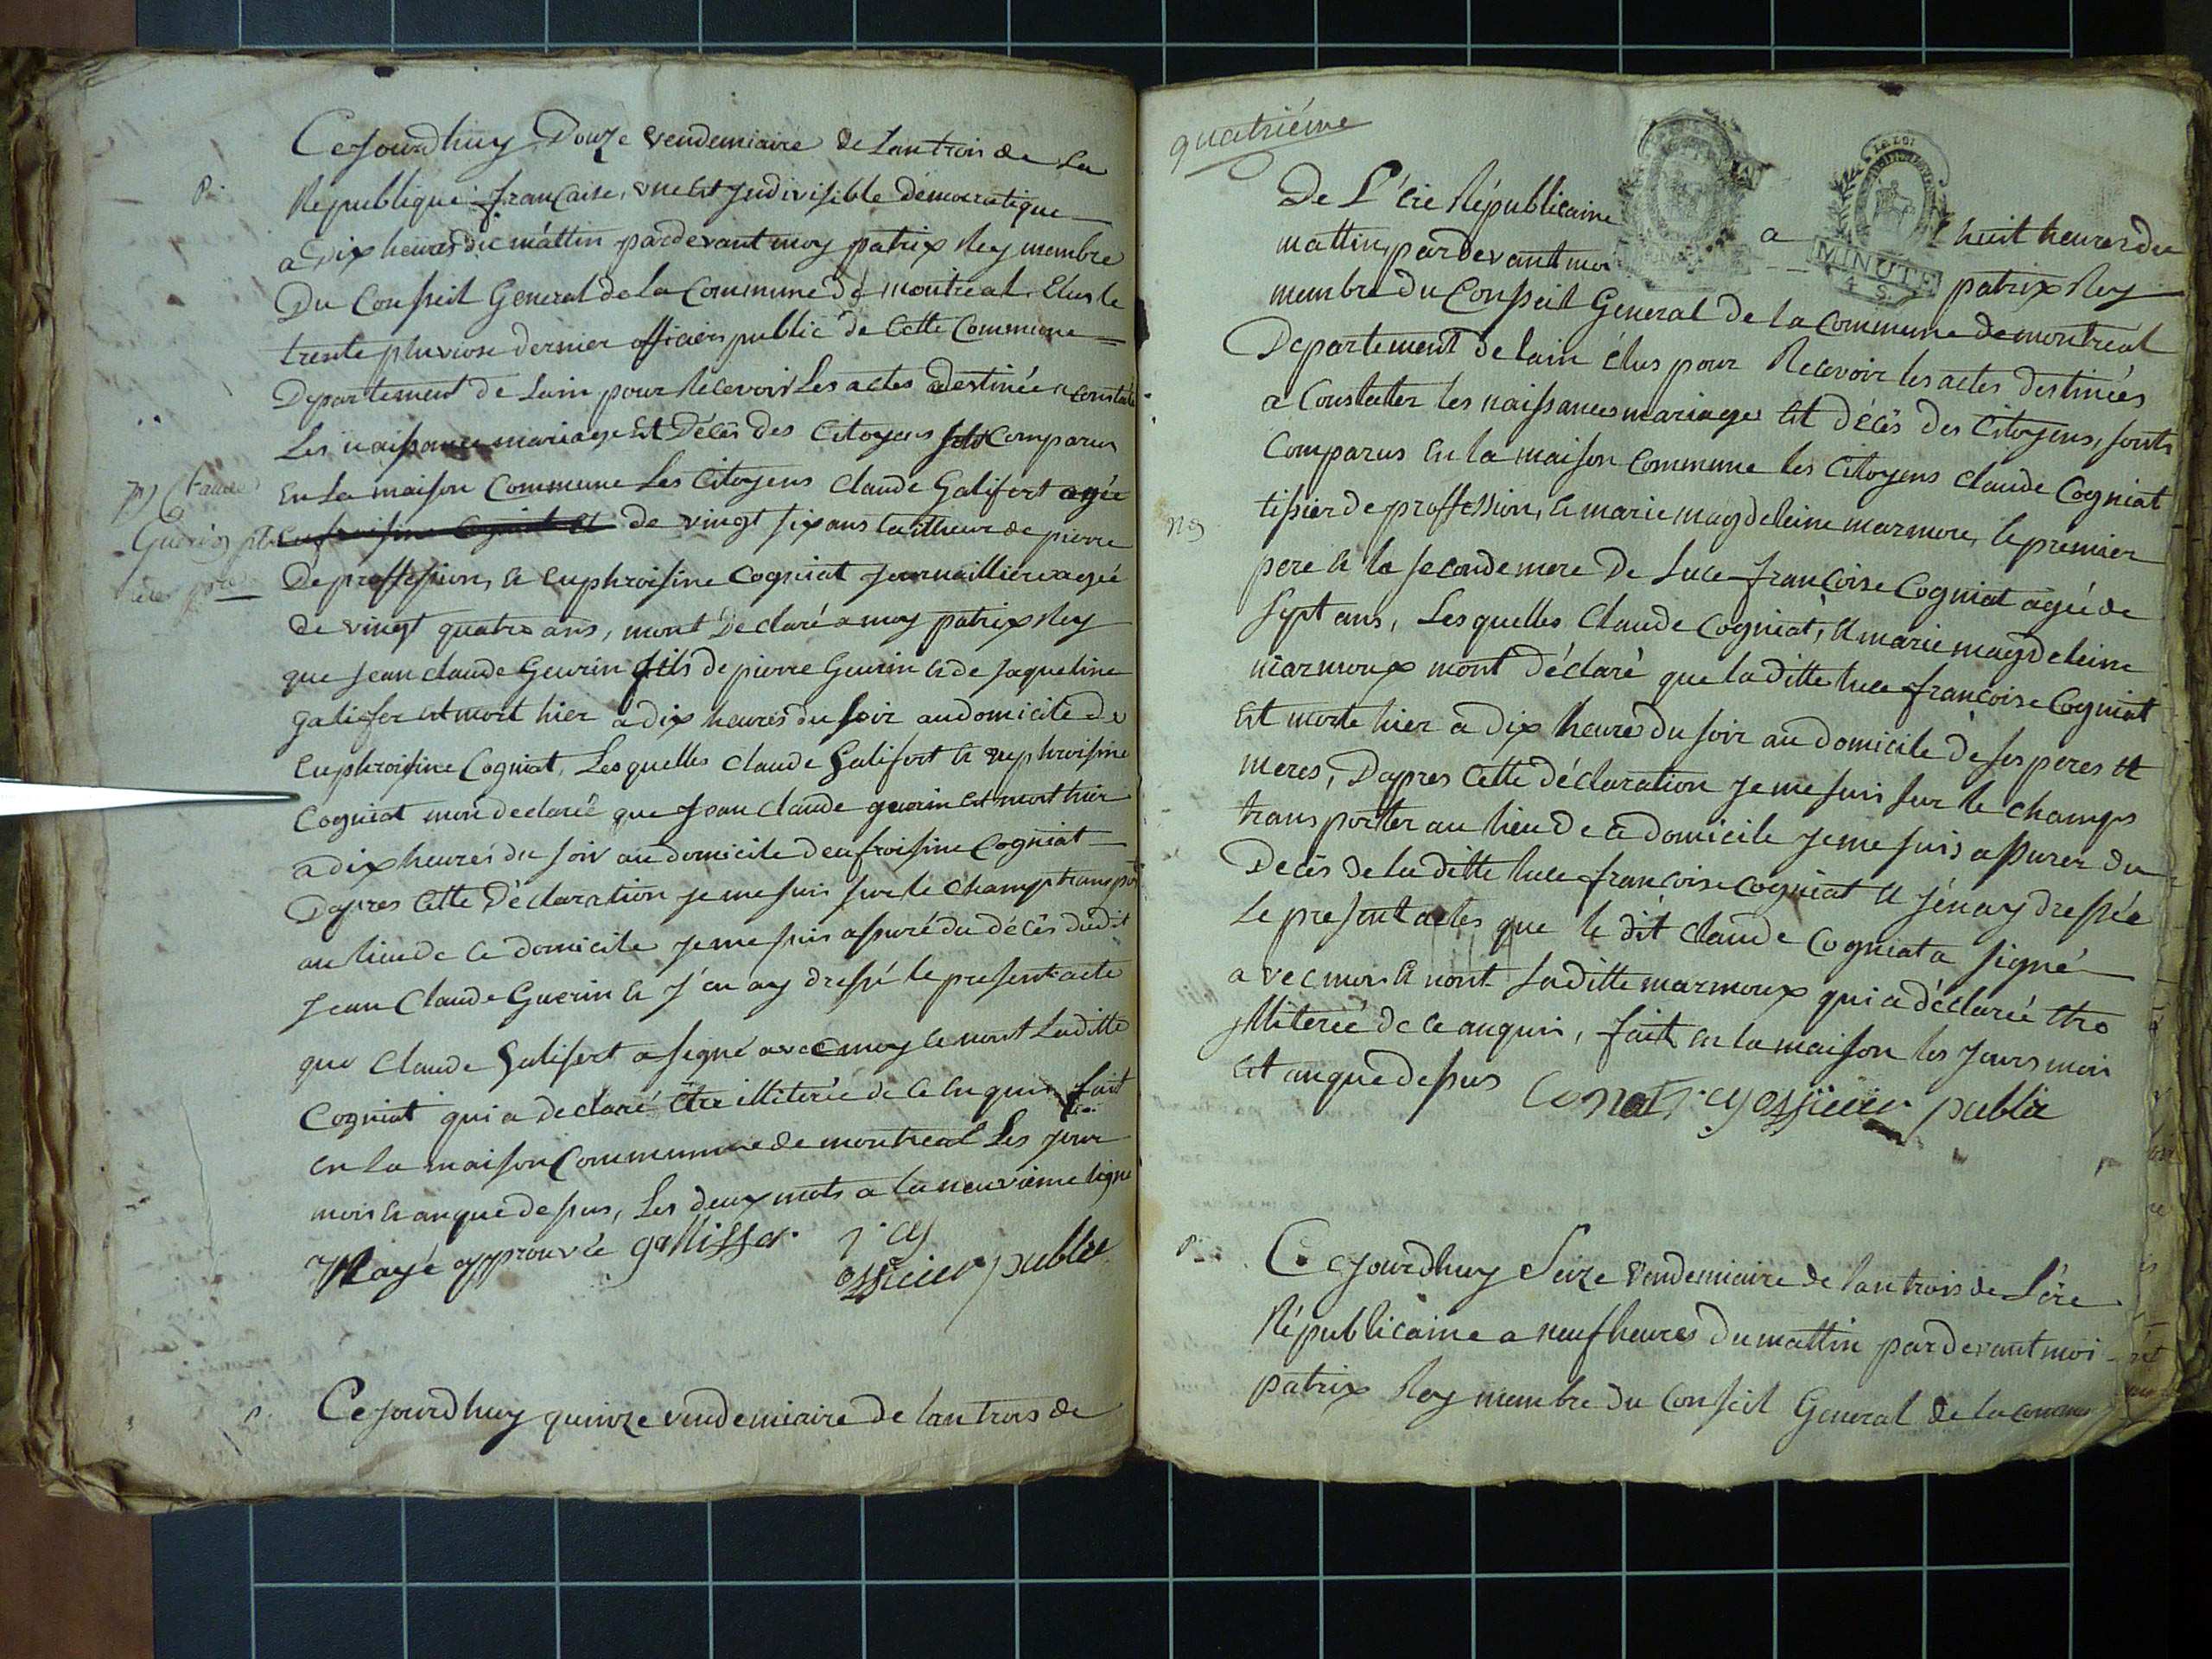 Cejourdhuy Douze vendemiaire de Lan trois de La
P.
Republique françaire, une Et Jndivisible démocratique
a dix heures du mattin pardevant moy patrix Rey membre
Du Conseil General de la Commune de montreal. Elus le
trente pluviose dernier officier public de Cette Commune
Departement de Lain pour Recevoir Les actes destinée a constaté
Les naissances mariage Et Décès des Citoyens sont Comparus
En La maison Commune Les Citoyens Claude Galifert agée
de vingt six ans tailleur de pierre
De proffession, & Euphroisine Cogniat Journaillière agée
de vingt quatre ans, mont Declaré a moy patrix Rey
que Jean Claude Geurin fils de pierre Geurin & de Jaqueline
galifer Est mort hier a dix heures du soir au domicile De
Euphroisine Cogniat, Lesquelles Claude Galifert & Euphroisine
Cogniat mon declarée que Jean Claude guerin Est mort hier
a dix heures du soir au domicile deufroisine Cogniat
Dapres Cette Déclaration je me suis sur le Champ transpor
au lieu de Ce domicile je me suis assuré du décès dudit
Jean Claude Guerin & J'en ay dressé le present acte
que Claude Galifert a signé avec moy & nont Laditte
Cogniat qui a declaré Être illiterée de Ce Enquis fait
En La maison Commune de montreal Les jour
mois & an que dessus, Les deux mots a la neuvième ligne
Rayé approuvée gallisser rey
officier public
Cejourdhuy quinze vendemiaire de lan trois de
quatriéme
De L'ére Républicaine a huit heures du
mattin, pardevant moi patrix Rey
membre du Conseil General de la Commune de montréal
Departement de lain élus pour Recevoir les actes destinées
a Constatter les naissances mariages Et décès des Citoyens, sonts
Comparus En la maison Commune les Citoyens Claude Cogniat
tissier de proffession, & marie magdeleine marmoux, le premier
pere & la seconde mere De Luce françoise Cogniat agée de
sept ans, Lesquelles Claude Cogniat, & marie magdeleine
marmoux mont déclaré que laditte luce francoise Cogniat
Est morte hier a dix heures du soir au domicile de ses peres et
meres, Dapres Cette déclaration je me suis sur le champs
transportter au lieu de Ce domicile je me suis assurer du
Décès de laditte luce francoise Cogniat & j'énay dressée
Le present actes que le dit Claude Cogniat a signé
avec moi & nont laditte marmoux qui a déclarée Etre
illiterée de Ce anquis, fait En la maison les jours mois
Et an que dessus Conat rey officier public
P.
Cejourdhuy Seize Vendemiaire de lan trois de L'ére
Républicaine a neuf heures du mattin pardevant moi
patrix Rey membre du Conseil General de la commu